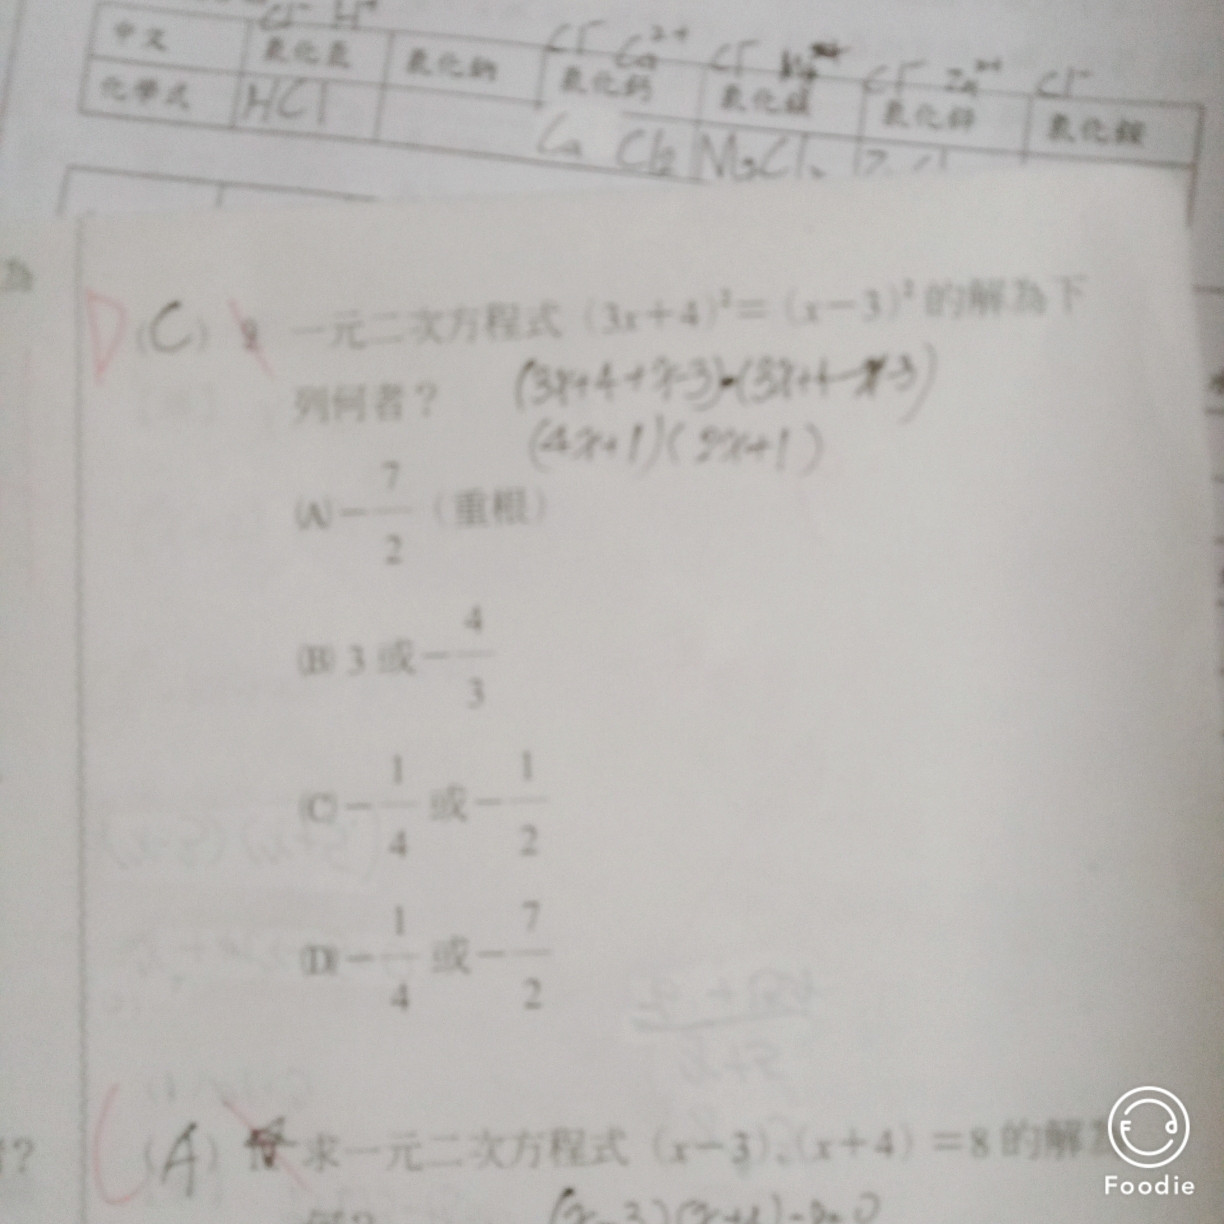 Cl⁻ H⁺
Cl⁻ Ca²⁺ Cl⁻ Cl⁻ Zn²⁺ Cl⁻
中文 氯化氫 氯化鈉 氯化鈣 氯化鎂 氯化鋅 氯化銨
化學式 HCl CaCl₂ MgCl₂
為
D (C) 一元二次方程式(3x+4)²=(x-3)²的解為下
列何者? (3x+4+x-3)-(3x+4-x-3)
(4x+1)(2x+1)
(A) -7/2 (重根)
(B) 3 或 -4/3
(C) -1/4 或 -1/2
(D) -1/4 或 -7/2
? (A) 求一元二次方程式(x-3)(x+4)=8的解
(x-3)(x+4)-8=0
Foodie